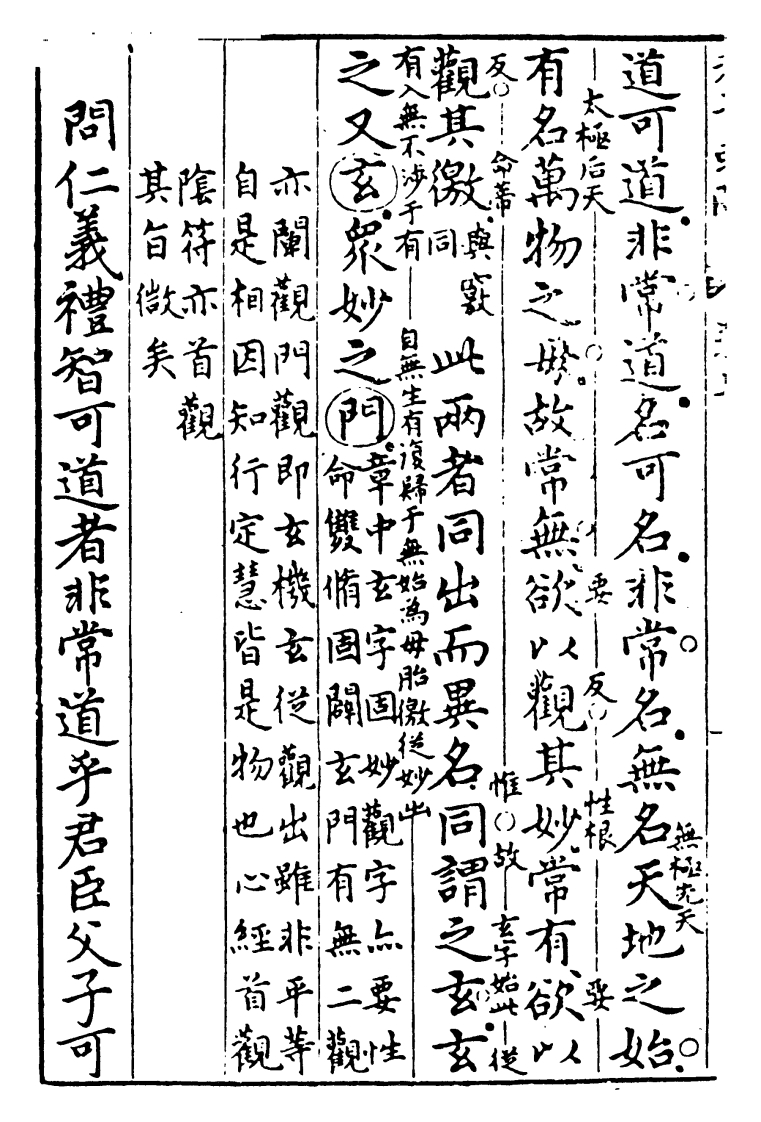 道可道非常道名可名非常名無名天地之始
無極先天
太極后天
有名萬物之母故常無欲以觀其妙常有欲以
要
反
性根
要
反
命蒂
觀其徼與竅同此兩者同出而異名同謂之玄玄
惟○故
玄字始此
從有入無不涉于有
自無生有復歸于無始為母胎徼從妙出
之又玄眾妙之門章中玄字固妙觀字亦要性
命雙脩固闢玄門有無二觀
亦闡觀門觀即玄機玄從觀出雖非平等
自是相因知行定慧皆是物也心經首觀
陰符亦首觀
其旨微矣
問仁義禮智可道者非常道乎君臣父子可